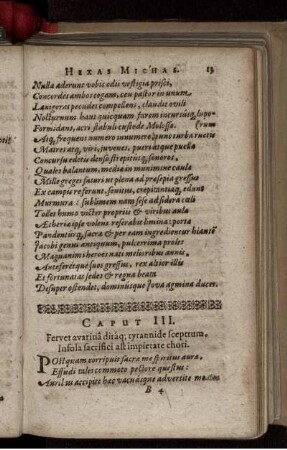 HEXAS MICHAE. 13
Nulla aderunt vobis odii vestigia prisci,
Concordes ambos cogam, ceu pastor in unum
Lanigeras pecudes compellens, claudit ovili
Nocturnum haut quicquam furem incursusq; lupo-
Formidans, acri stabuli custode Molosso. (rum
Atq; frequens numero innumero; tunc turba ruetis
Matres atq; viri, juvenes, pueriq; puella
Concursu edetis denso strepitusq; sonoros,
Quales balantum, media in munimine caulæ
Mille greges saturi ut plena ad præsepia gressus
Ex campis referunt, sonitus, crepitantiaq; edunt
Murmura: sublimem nam sese ad sidera cœli
Tollet humo vultor propriis & viribus aula
Ætheriæ ipse volens reserabit limina: porta
Pandentur, sacra & per eam ingredientur hiantē
Jacobi genus antiquum, pulcerrima proles
Magnanimi heroes nati melioribus annis.
Anteferetque suos gressus, rex altior illis
Et fortunatas sedes & regna beata
Desuper ostendet, dominusque Jova agmina ducet.
CAPUT III.
Fervet avaritiâ ditāq; tyrannide sceptrum,
Insula sacrifici ast impietate chori.
POstquam corripuit sacræ me spiritus auræ,
Effudi tales commoto pectore questus:
Auribus accipite hæc vacuasque advertite mentes
B 4